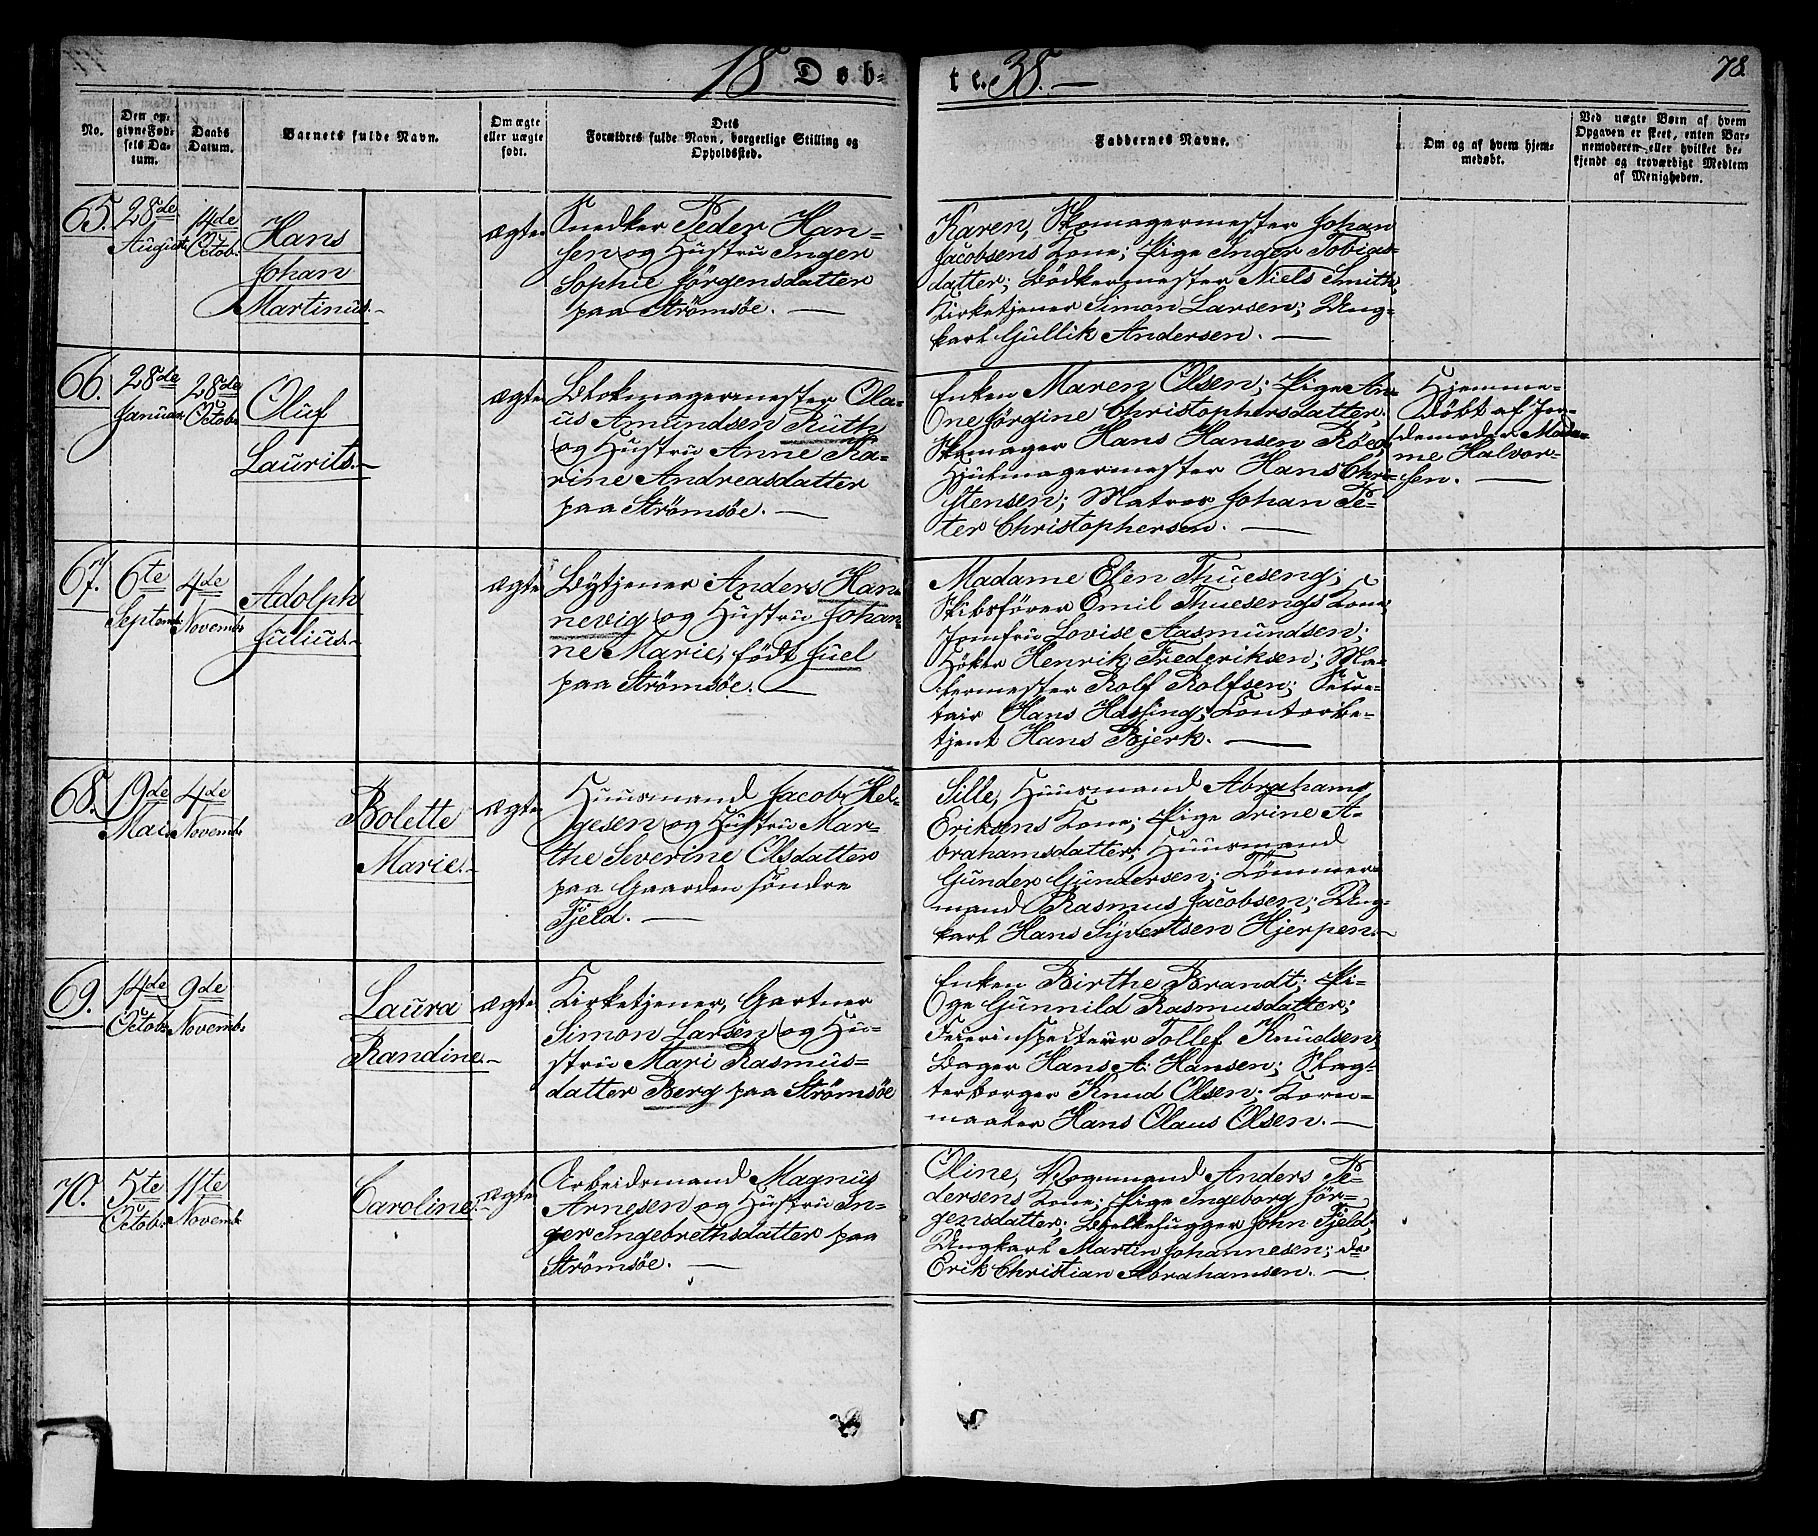 18 Døb-
te. 38. —
78.
No.
Den op-
givne Fød-
sels Da-
tum.
Daabs
Datum.
Barnets fulde Navn.
Om ægte
eller uægte
født.
Dets
Forældres fulde Navn, borgerlige Stilling og
Opholdssted.
Faddernes Navne.
Om og af hvem hjem-
medøbt.
Ved uægte Børn af hvem
Opgaven er skeet, enten Bar-
nemoderen eller hvilket be-
kjendt og troværdigt Medlem
af Menigheden.
65.
28de
August
14de
Octob.
Hans
Johan
Martinus.—
ægte
Snedker Peder Han-
sen og Hustru Inger
Sophie Jörgensdatter
paa Strömsöe. —
Karen, Skomagermester Johan
Jacobsens Kone; Pige Inger Tobias-
datter; Bödkermester Niels Smith,
Kirketjener Simon Larsen; Ung-
karl Gullik Andersen. —
66.
28de
Januar
28de
Octob.
Oluf
Laurits.—
ægte
Blokmagermester Ola-
us Amundsen Ruth
og Hustru Anne Ka-
rine Andreasdatter
paa Strömsöe. —
Enken Maren Olsen; Pige An-
ne Jörgine Christophersdatter;
Skomager Hans Hansen Röed;
Hjulmagermester Hans Chri-
stensen; Matros Johan Pe-
ter Christophersen. —
Hjemme-
döbt af Jor-
demoder Mada-
me Halvor-
sen. —
67.
6te
Septemb.
4de
Novemb.
Adolph
Julius.—
ægte
Bytjener Anders Han-
nevig og Hustru Johan-
ne Marie, födt Juel
paa Strömsöe. —
Madame Elen Thueseng;
Skibsförer Emil Thuesengs Kone;
Jomfru Lovise Aasmundsen;
Höker Henrik Frederiksen; Ma-
lermester Rolf Rolfsen; Secre-
tair Hans Hassing; Contorbe-
tjent Hans Bjerk. —
68.
19de
Mai
4de
Novemb.
Bolette
Marie.—
ægte
Huusmand Jacob Hel-
gesen og Hustru Mar-
the Severine Olsdatter
paa Gaarden söndre
Fjeld. —
Sille, Huusmand Abrahams
Eriksens Kone; Pige Trine A-
brahamsdatter; Huusmand
Gunder Gundersen; Tömmer-
mand Rasmus Jacobsen; Ung-
karl Hans Syvertsen Hjerpen.—
69.
14de
Octob.
9de
Novemb.
Laura
Randine.—
ægte
Kirketjener, Gartner
Simon Larsen og Hu-
stru Mari Rasmus-
datter Berg paa Strömsöe
Enken Birthe Brandt; Pi-
ge Gunnild Rasmusdatter;
Feierinspecteur Tollef Knudsen;
Bager Hans A. Hansen; Slag-
terborger Knud Olsen; Korn-
maaler Hans Olaus Olsen. —
70.
5te
Octob.
11te
Novemb.
Caroline.—
ægte
Arbeidsmand Magnus
Arnesen og Hustru In-
ger Ingebrethsdatter paa
Strömsöe. —
Oline, Vognmand Anders Pe-
dersens Kone; Pige Ingeborg Jör-
gensdatter; Bjelkehugger John Fjeld;
Ungkarl Martin Johannesen; do
Erik Christian Abrahamsen. —